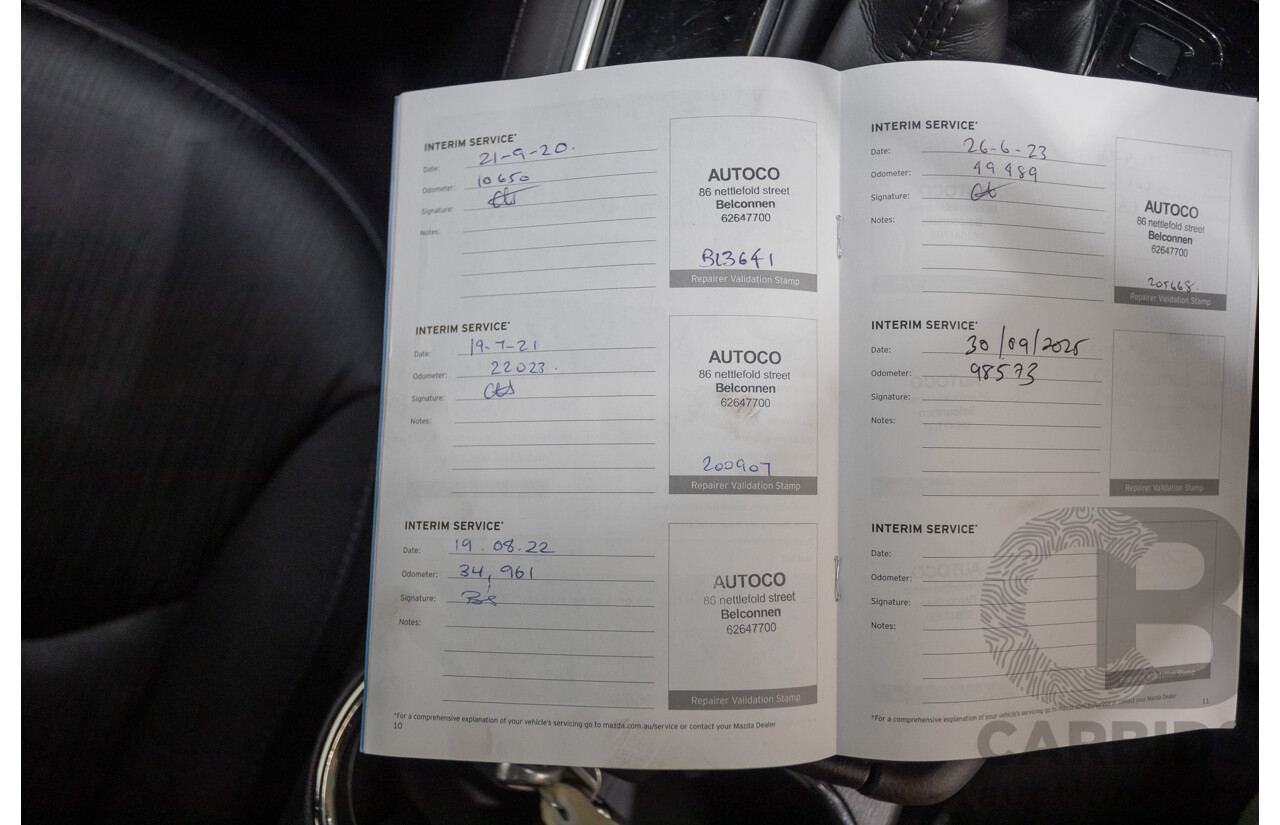 INTERIM SERVICE*
Date: 21-9-20.
Odometer: 10650
Signature:
Notes:
AUTOCO
86 nettlefold street
Belconnen
62647700
BL3641
Repairer Validation Stamp
INTERIM SERVICE*
Date: 19-7-21
Odometer: 22023.
Signature:
Notes:
AUTOCO
86 nettlefold street
Belconnen
62647700
200907
Repairer Validation Stamp
INTERIM SERVICE*
Date: 19.08.22
Odometer: 34,961
Signature:
Notes:
AUTOCO
86 nettlefold street
Belconnen
62647700
Repairer Validation Stamp
*For a comprehensive explanation of your vehicle's servicing go to mazda.com.au/service or contact your Mazda Dealer
10
INTERIM SERVICE*
Date: 26-6-23
Odometer: 49489
Signature:
Notes:
AUTOCO
86 nettlefold street
Belconnen
62647700
205668.
Repairer Validation Stamp
INTERIM SERVICE*
Date: 30/09/2025
Odometer: 98573
Signature:
Notes:
Repairer Validation Stamp
INTERIM SERVICE*
Date:
Odometer:
Signature:
Notes:
Validation Stamp
*For a comprehensive explanation of your vehicle's servicing go to or contact your Mazda Dealer
11
CARBIDS